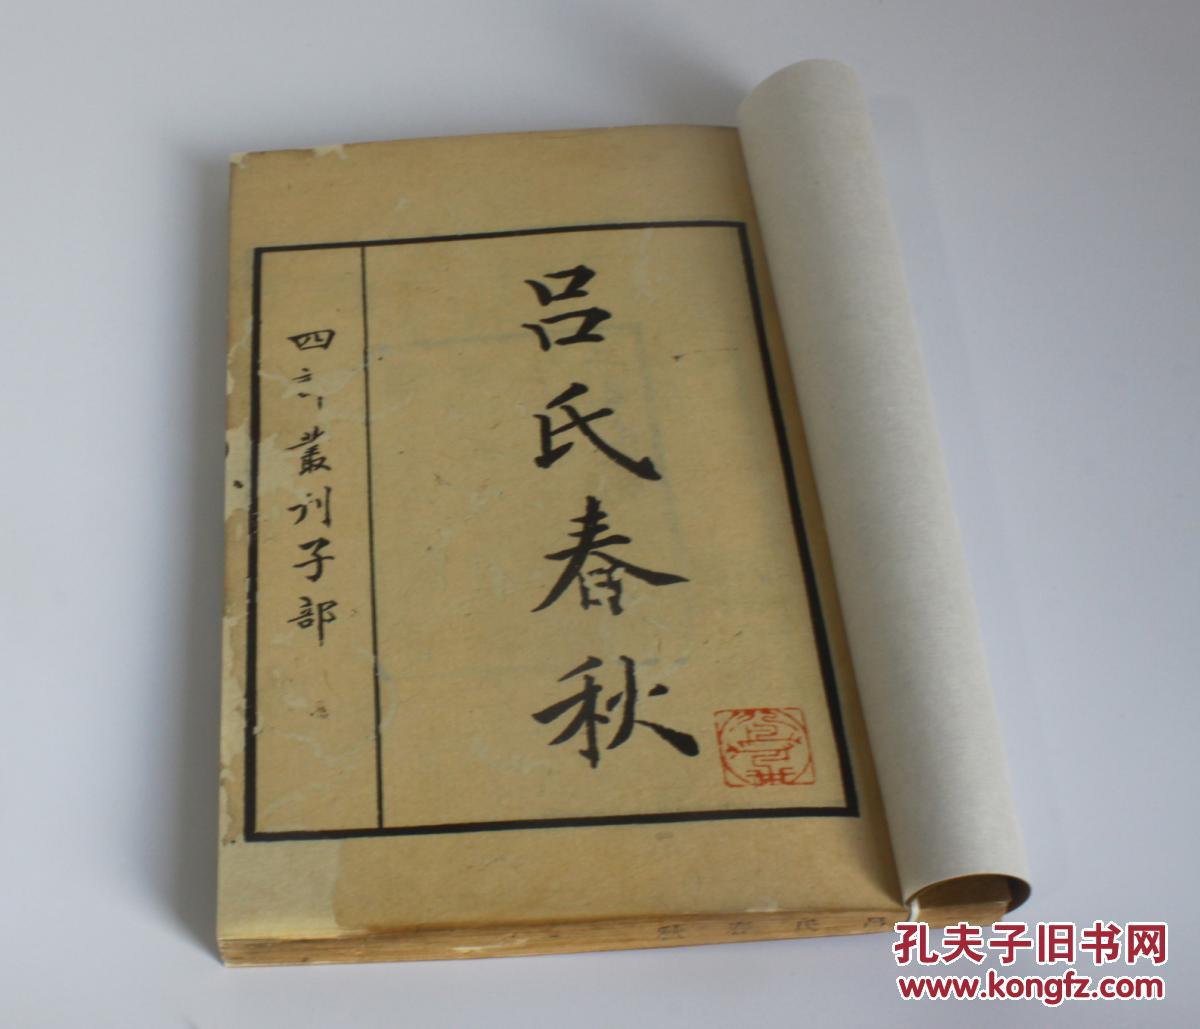 吕氏春秋
四部叢刊子部
孔夫子旧书网
www.kongfz.com